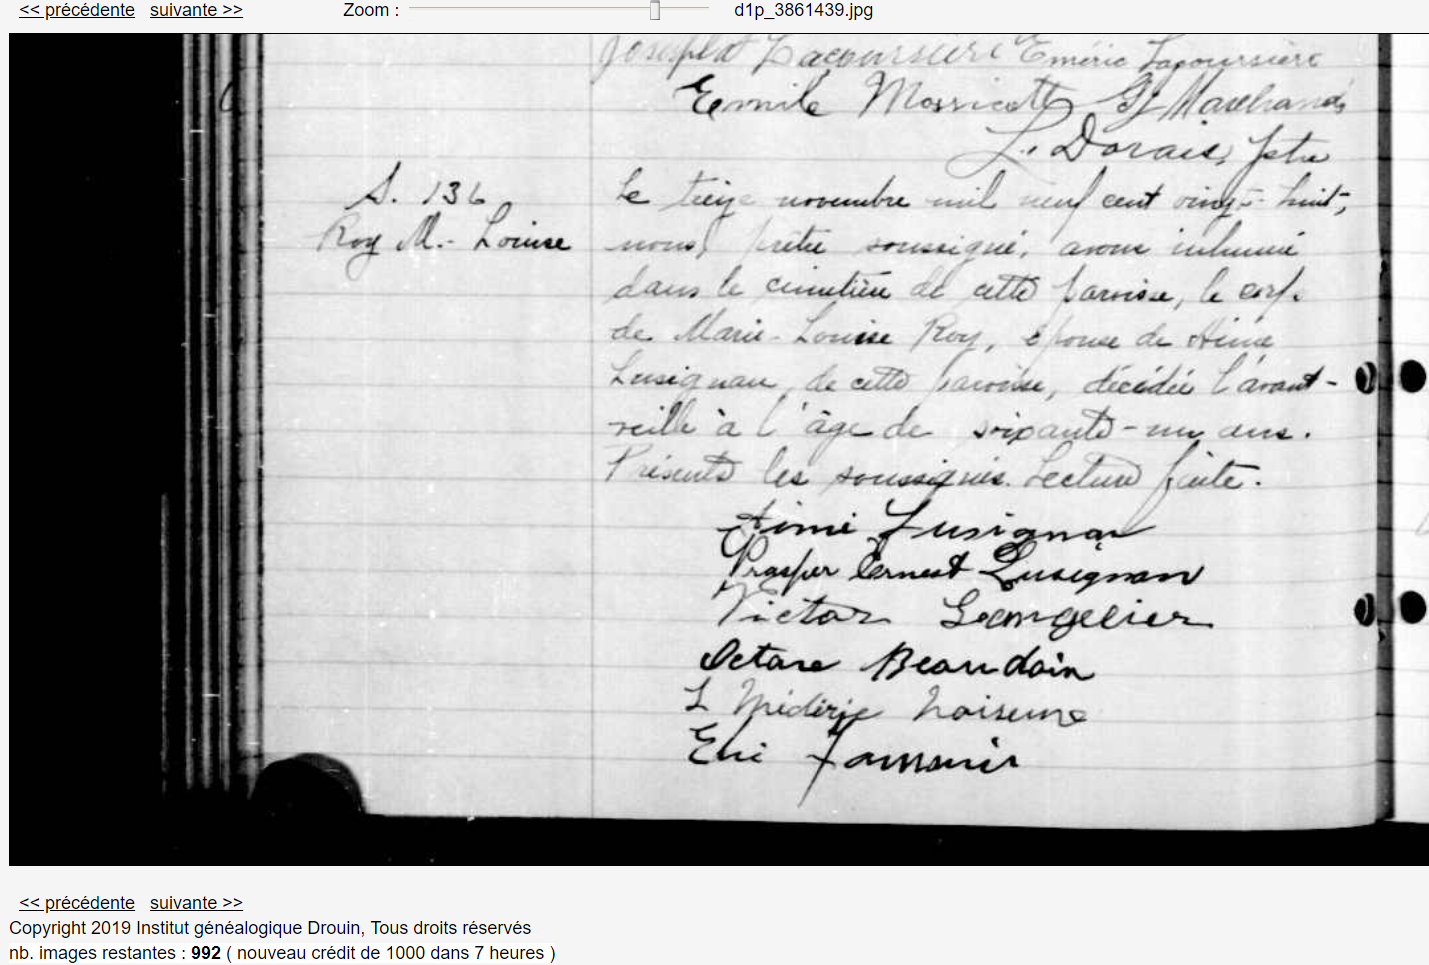 << précédente suivante >> Zoom : d1p_3861439.jpg
Josaphat Lacoursière Eméric Lacoursière
Emile Marchand
L. Dorais, ptre
S. 136
Roy M.- Louise
Le treize novembre mil neuf cent vingt-huit,
nous, prêtre soussigné, avons inhumé
dans le cimetière de cette paroisse, le corps
de Marie-Louise Roy, épouse de Aimé
Lusignan, de cette paroisse, décédée l'avant-
veille à l'âge de soixante-un ans.
Présents les soussignés. Lecture faite.
Aimé Lusignan
Prosper Ernest Lusignan
Victor Langelier
Octave Beaudoin
L Médéric
<< précédente suivante >>
Copyright 2019 Institut généalogique Drouin, Tous droits réservés
nb. images restantes : 992 ( nouveau crédit de 1000 dans 7 heures )